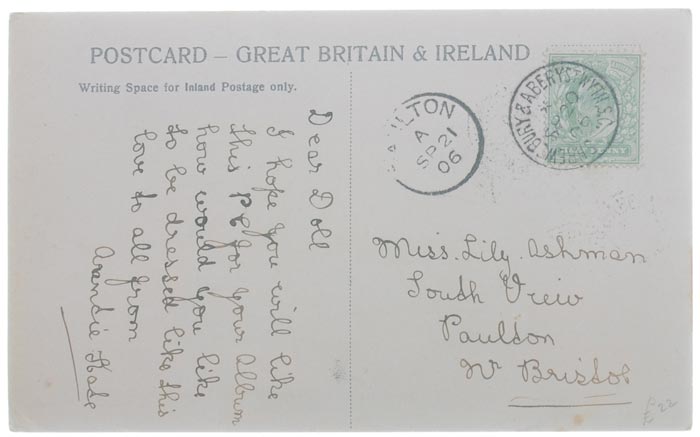 POSTCARD – GREAT BRITAIN & IRELAND
Writing Space for Inland Postage only.
Dear Doll
I hope you will like
this PC for your Album
how would you like
to be dressed like this
love to all from
Auntie Kate
PAULTON
A
SP 21
06
SHREWSBURY & ABERYSTWYTH S.C.
Miss. Lily. Ashman
South View
Paulton
Nr Bristol
E 22